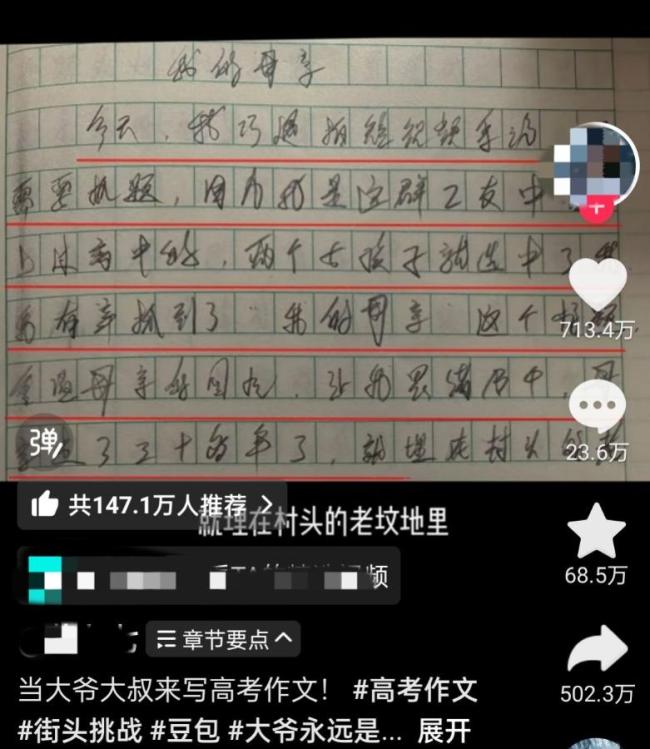 我的母亲
今天，我巧遇拍短视频手机
要抓题，因为我是这群工友中
上过高中的，两个女孩子就选中了我
有幸抓到了“我的母亲”这个
母亲
了三十多年了，就埋在村头的
713.4万
弹
23.6万
共147.1万人推荐 >
就埋在村头的老坟地里
频
68.5万
章节要点
当大爷大叔来写高考作文！ #高考作文
502.3万
#街头挑战 #豆包 #大爷永远是... 展开